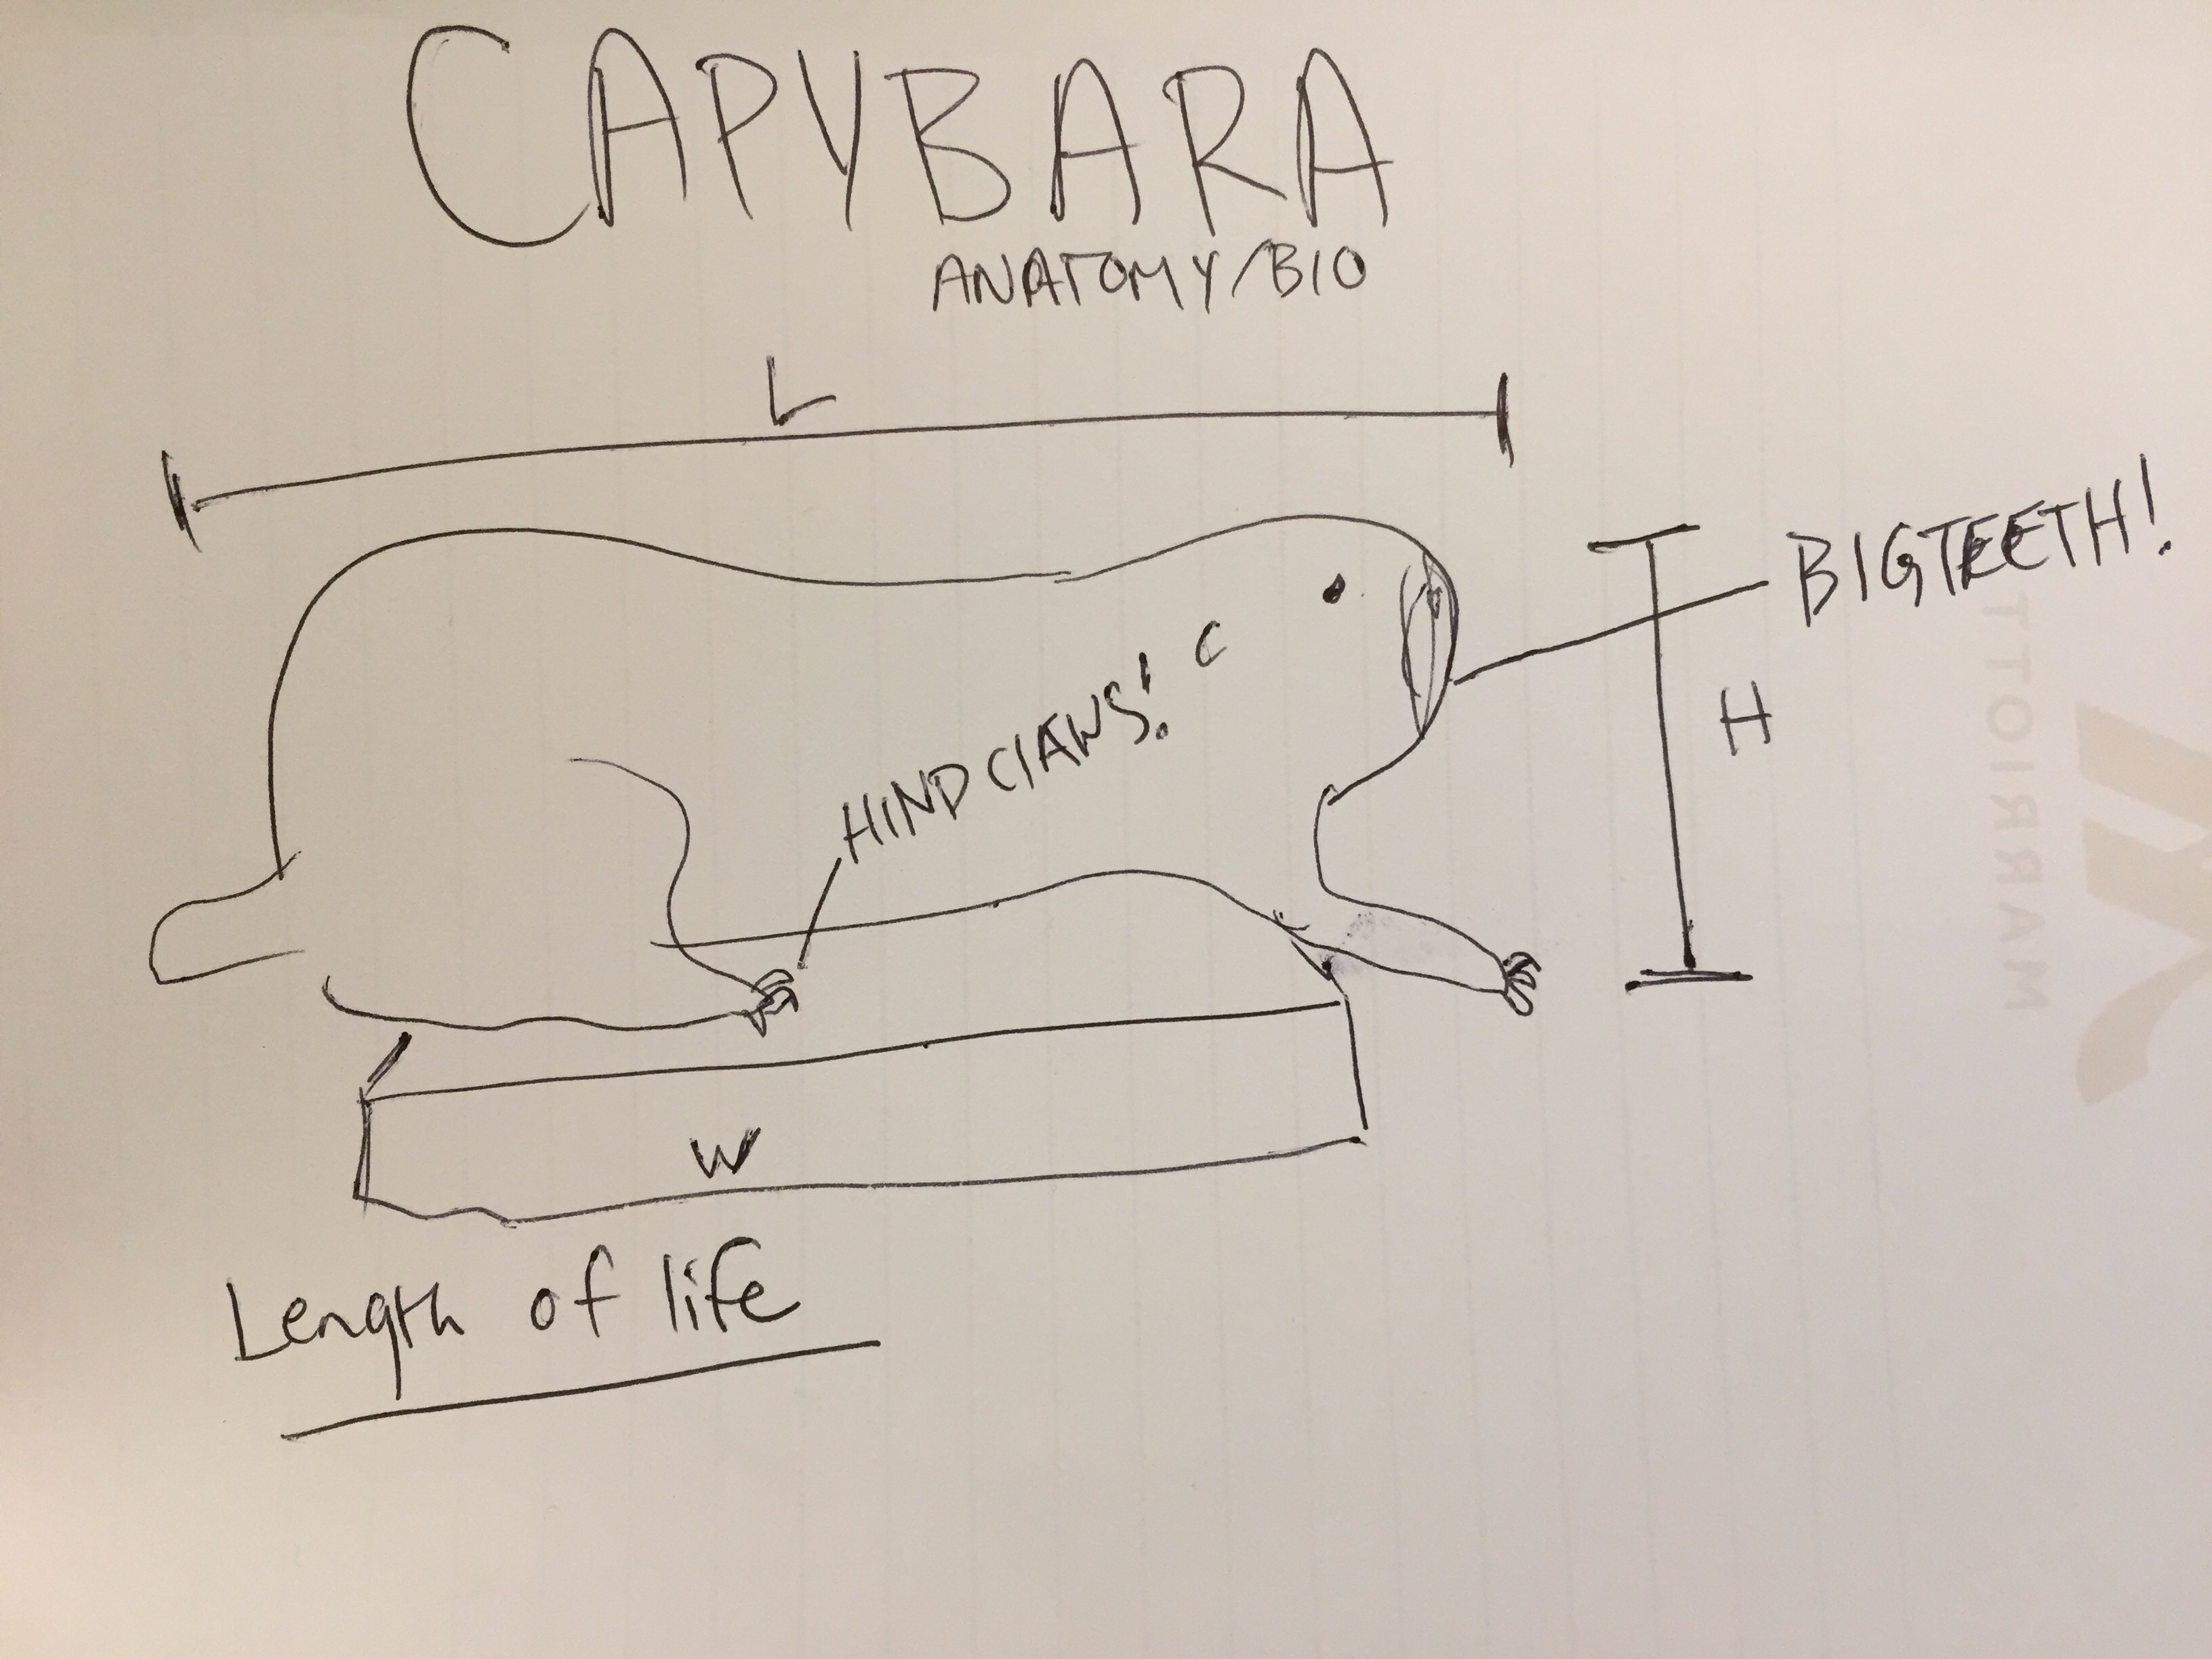 CAPYBARA
ANATOMY/BIO
L
BIG TEETH!
H
HIND ClAWS!
W
Length of life
MARRIOTT